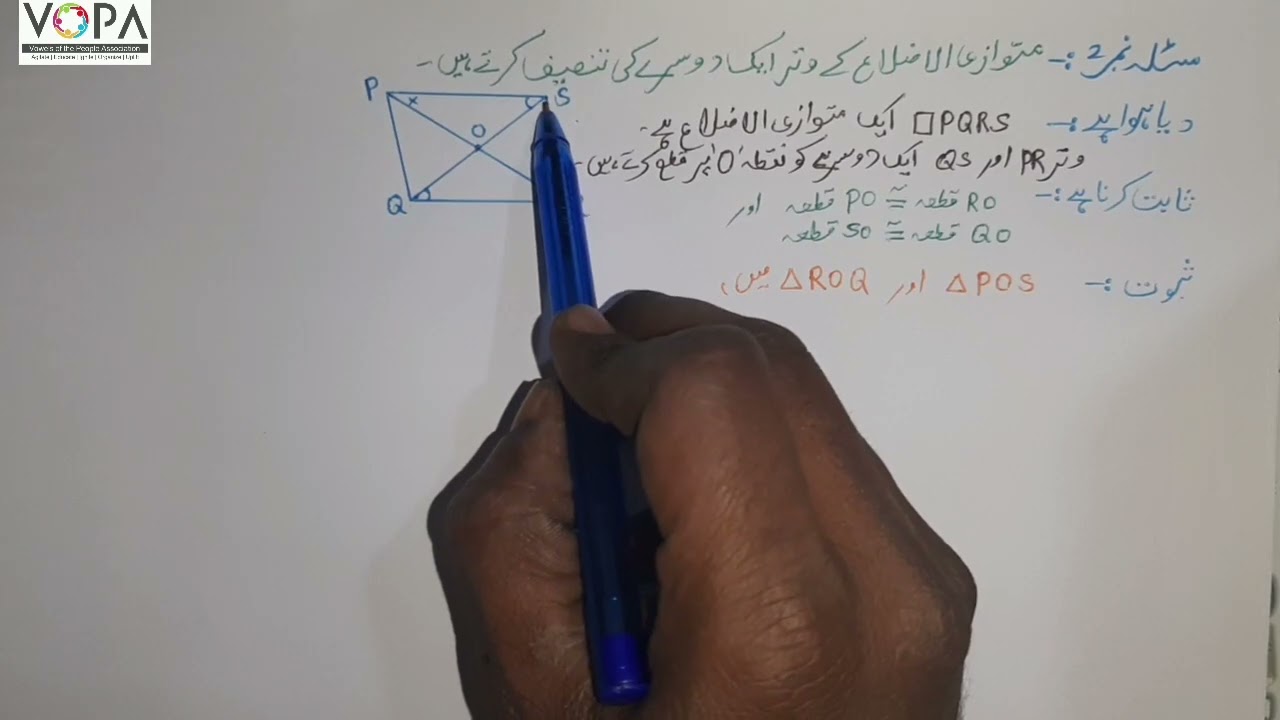 VOPA
Vowels of the People Association
مسئلہ نمبر 2 :- متوازی الاضلاع کے وتر ایک دوسرے کی تنصیف کرتے ہیں۔
دیا ہوا ہے :- □PQRS ایک متوازی الاضلاع ہے۔
وتر PR اور QS ایک دوسرے کو نقطہ 'O' پر قطع کرتے ہیں۔
ثابت کرنا ہے :- قطعہ PO ≅ قطعہ RO اور
قطعہ SO ≅ قطعہ QO
ثبوت :- △POS اور △ROQ میں،
P
S
O
Q